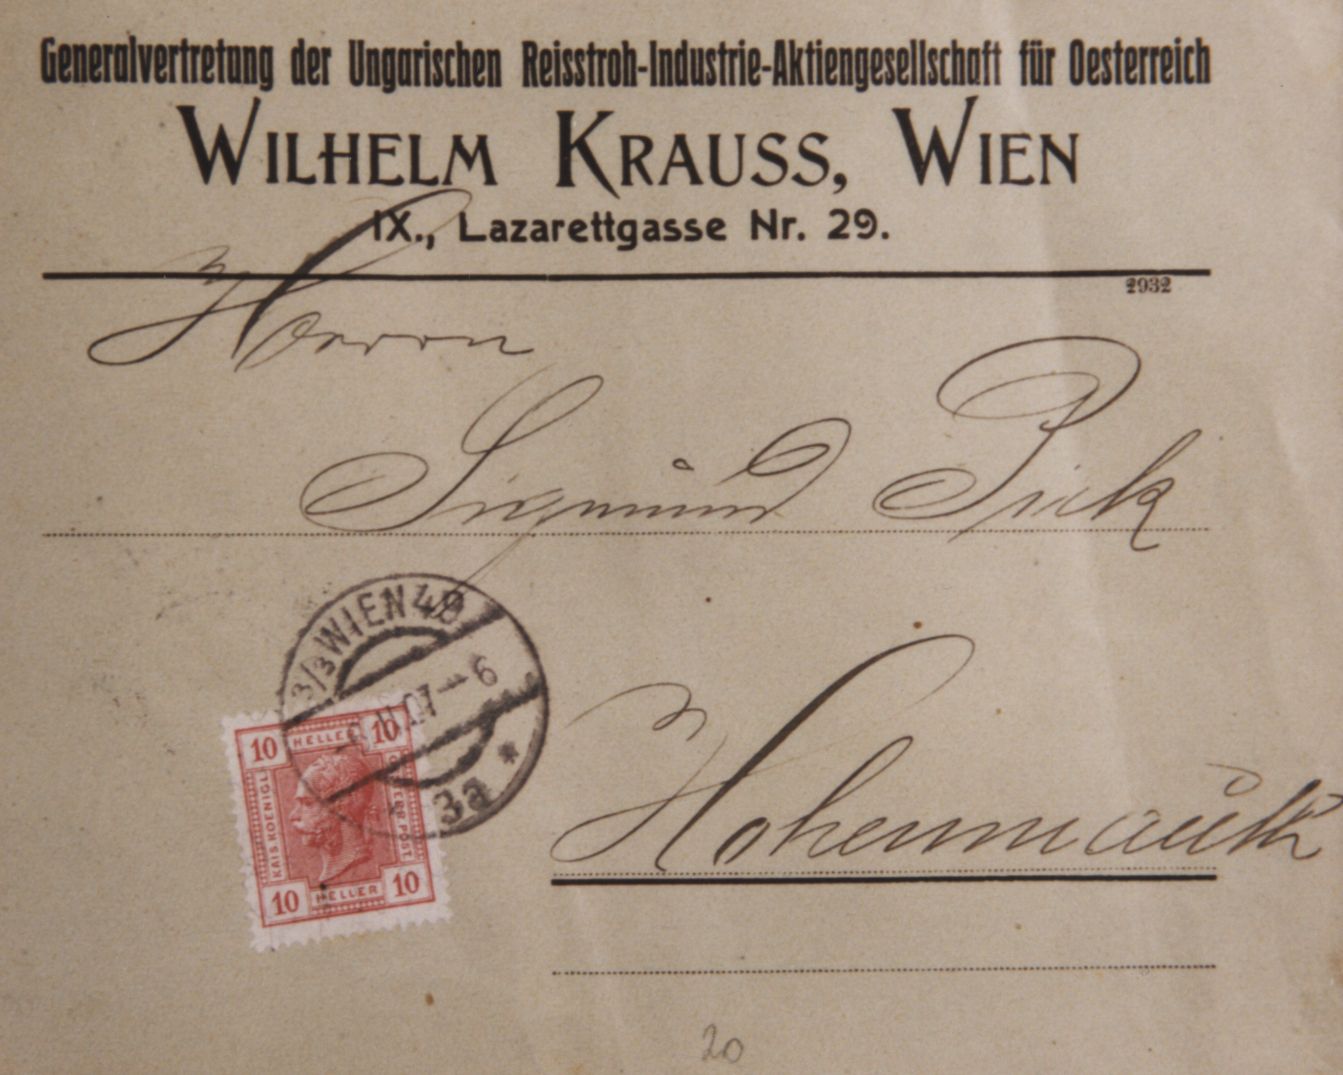 Generalvertretung der Ungarischen Reisstroh-Industrie-Aktiengesellschaft für Oesterreich
WILHELM KRAUSS, WIEN
IX., Lazarettgasse Nr. 29.
2932
Herrn
Sigmund Pick
3/3 WIEN 48
II 07 - 6
3a *
10 HELLER 10
KAIS KOENIGL
OESTERR POST
10 HELLER 10
Hohenmauth
20